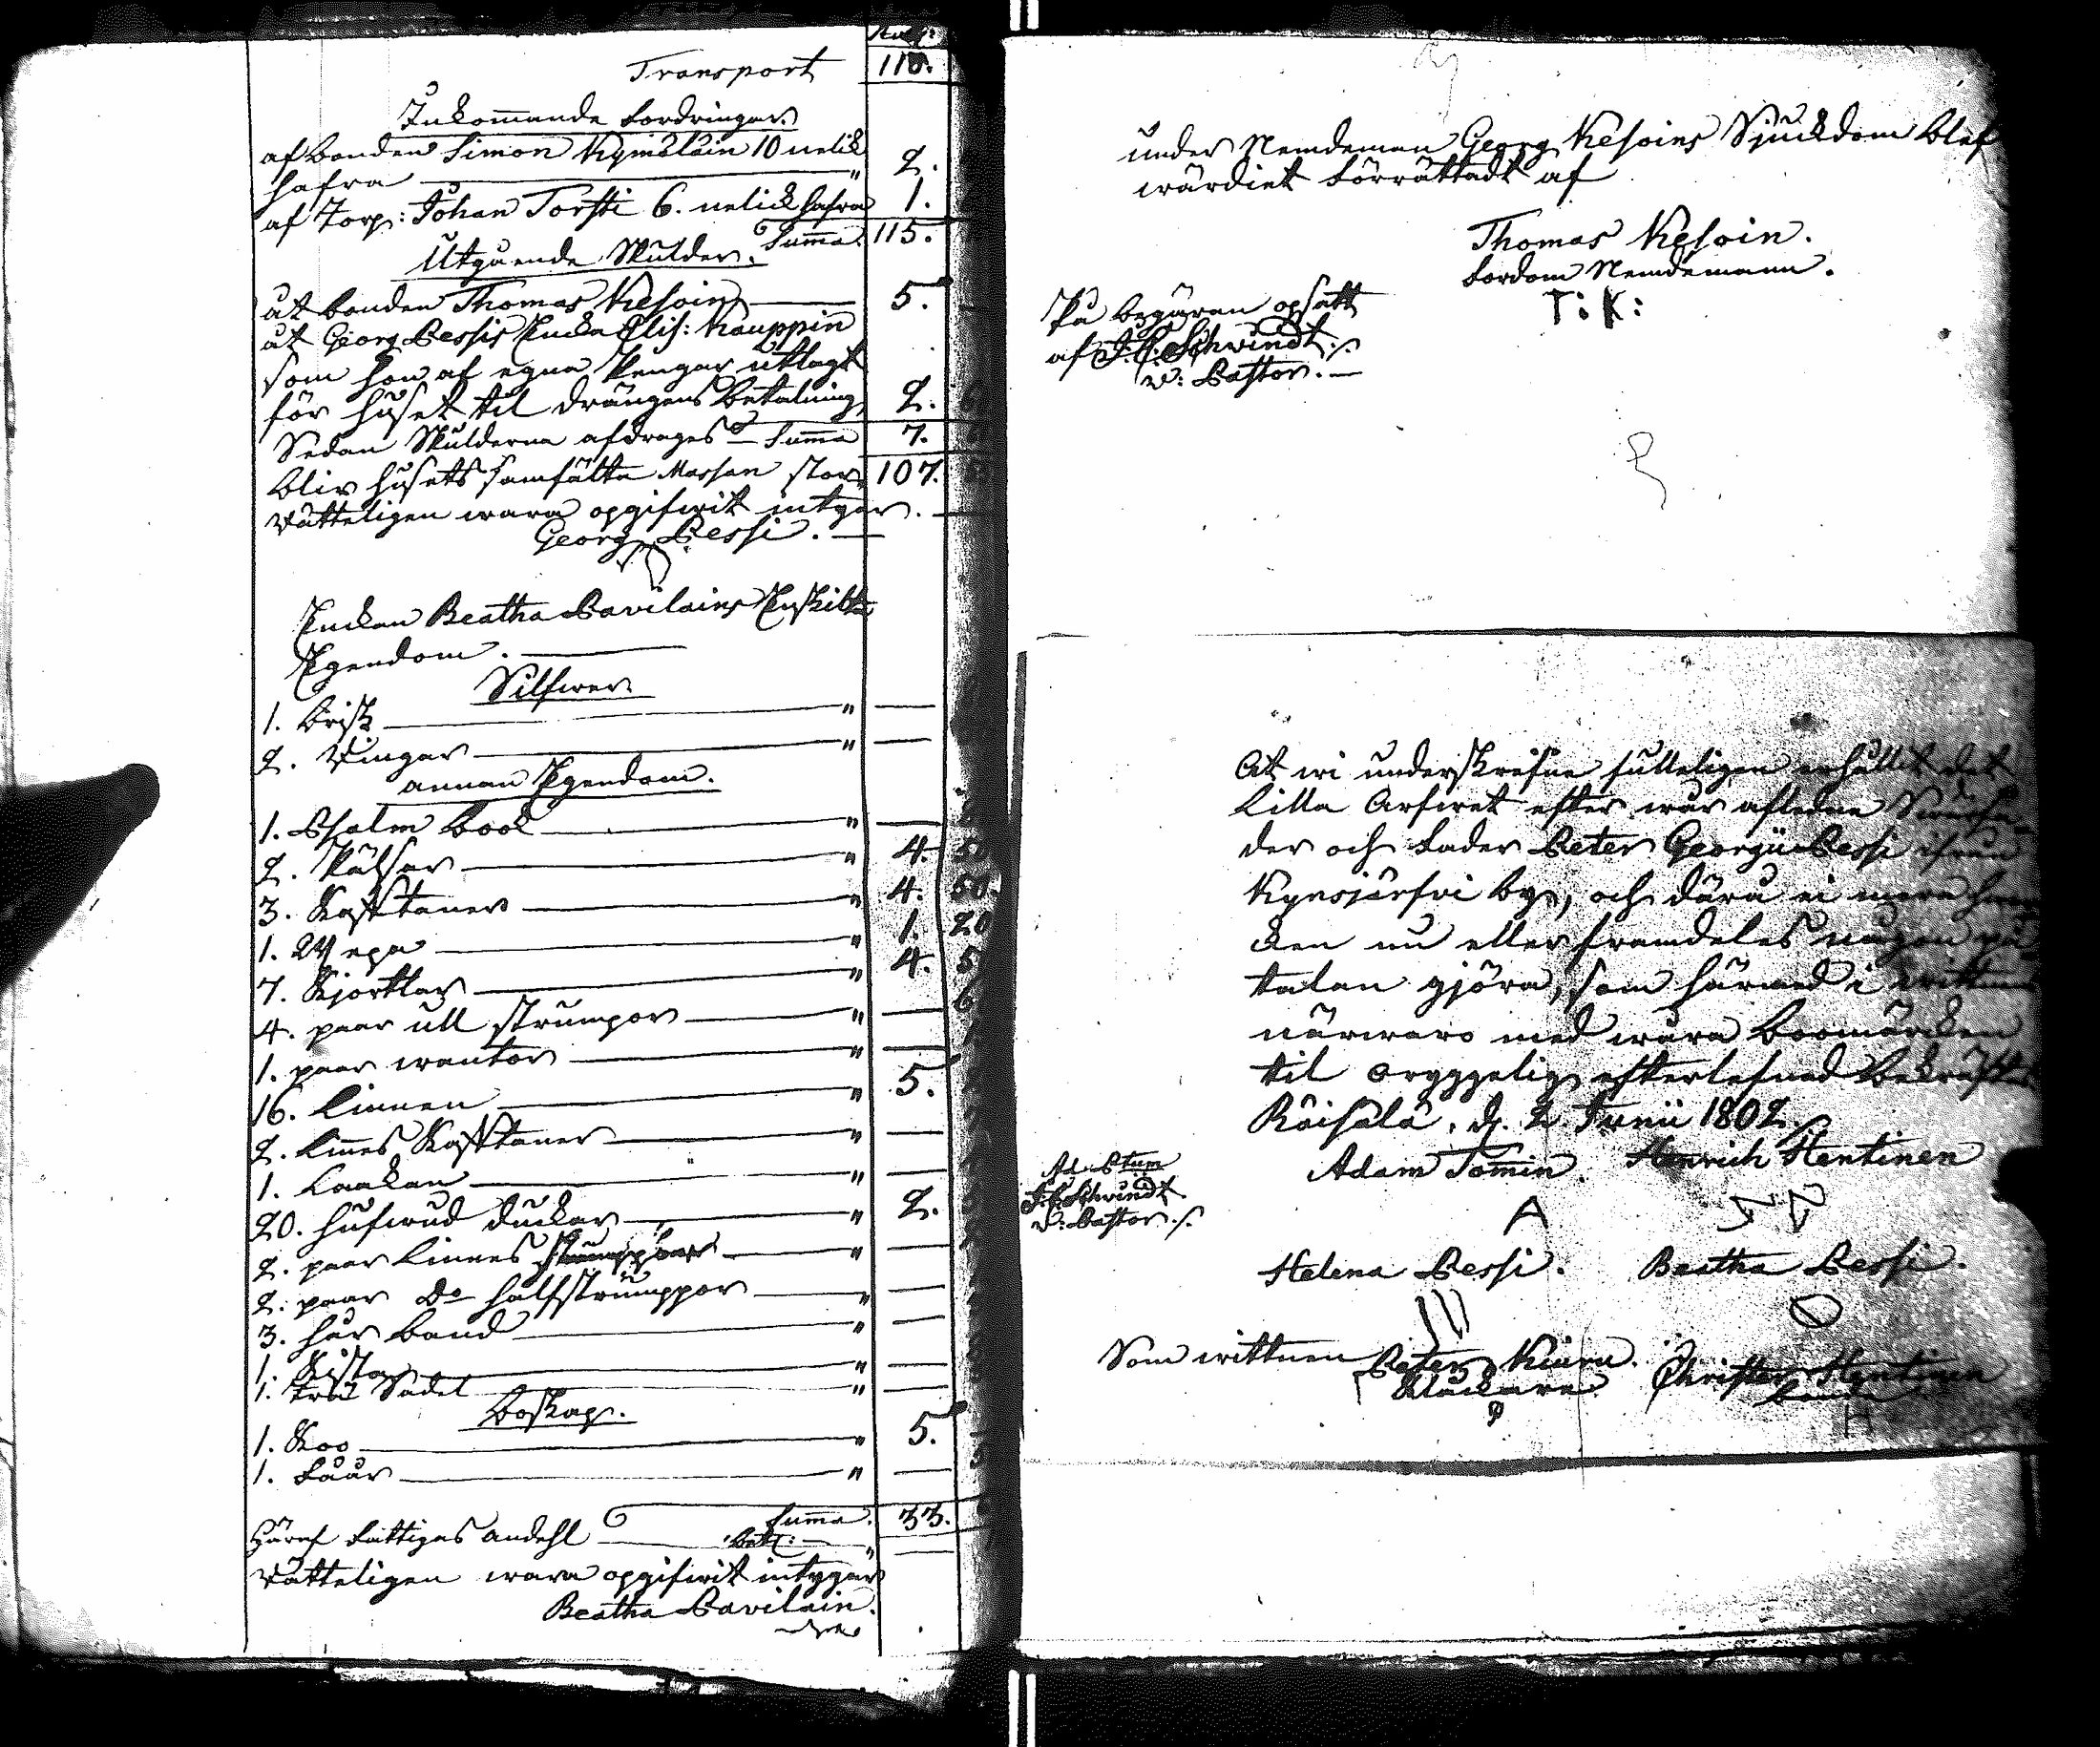 Transport 110.
Inkommande Fordringar
af bonden Simon Kymäläin 10 nelik
hafra — " 2.
af Torp: Johan Torsti 6. nelick hafra 1.
Summa 115.
Utgående Skulder.
åt bonden Thomas Kesoin — 5.
åt Georg Pessis Encka Elis: Kauppin
som hon af egna Pengar utlagt
för huset til drängens betalning 2.
Sedan Skulderna afdrages Summa 7.
blir husets samfälta Massan stor 107.
Rätteligen wara opgifwit intygar.
Georg Pessi.
Enckan Beatha Pavilains Enskilta
Egendom.
Silfwer
1. Brisk — "
2. Ringar — "
annan Egendom.
1. Psalm Book — "
2. Pälsar — " 4. 50
3. Kofftaner — " 4. 50.
1. Wepa — " 1. 20
7. Kjortlar — " 4. 5
4. paar ull strumpor — "
1. paar wantor — "
16. Linnen — " 5.
2. Linnes Kofftaner — "
1. Laakan — "
20. hufwud dukar — " 2.
2. paar Linnes — "
2. paar Do halfstrumppor — "
3. hår band — "
1. Kista — "
1. trä Sadel — "
Boskap.
1. Koo — " 5.
1. Fåår — "
Summa 33.
Häraf Fattiges andehl — "
Rätteligen wara opgifwit intygar
Beatha Pavilain.
under Nemdeman Georg Kesoins Sjuckdom blef
wärdiet förrättadt af
Thomas Kesoin.
fordom Nemdemann.
T: K:
På begäran opsatt
af J. E. Schwindt
v: Pastor.
At wi underskrefne fulleligen erhållit det
Lilla Arfwet efter wår aflidne Swärfa-
der och Fader Peter Georgii Pessi ifrån
Kynsjärfwi by, och dära ei mera hwar-
cken nu eller framdeles någon på
talan gjöra, som härmed i wittnens
närwaro med wåra boomärcken
til oryggelig efterlefnad bekräftas
Räisälä, d. 2 Junii 1802
Adam Tomin. Henrich Hentinen
Ad. Etum
J. E. Schwindt
v: Pastor.
Helena Pessi. Beatha Pessi.
Som wittnen Peter Kiuru. Christer Hentinen
Klåckare bonde
H